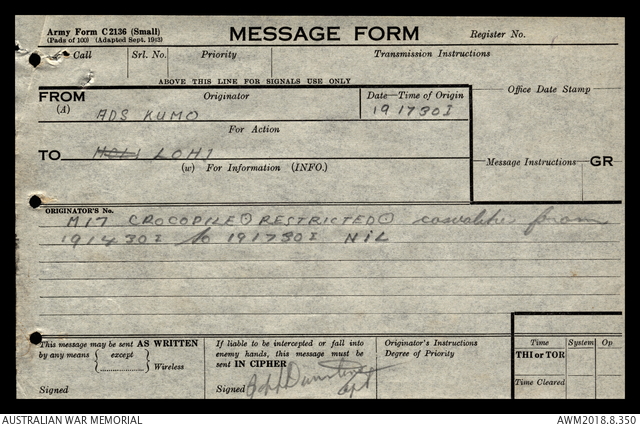 Army Form C2136 (Small)
(Pads of 100) (Adapted Sept. 1943)
MESSAGE FORM
Register No.
Call Srl. No. Priority Transmission Instructions
ABOVE THIS LINE FOR SIGNALS USE ONLY
FROM Originator Date—Time of Origin
Office Date Stamp
(A) ADS KUMO 191730I
For Action
TO LOHI
(w) For Information (INFO.)
Message Instructions GR
ORIGINATOR'S No.
M17 CROCODILE RESTRICTED casualties from
191430I to 191730I NIL
This message may be sent AS WRITTEN
by any means except Wireless
Signed
If liable to be intercepted or fall into
enemy hands, this message must be
sent IN CIPHER
Signed Capt
Originator's Instructions
Degree of Priority
Time System Op
THI or TOR
Time Cleared
AUSTRALIAN WAR MEMORIAL AWM2018.8.350